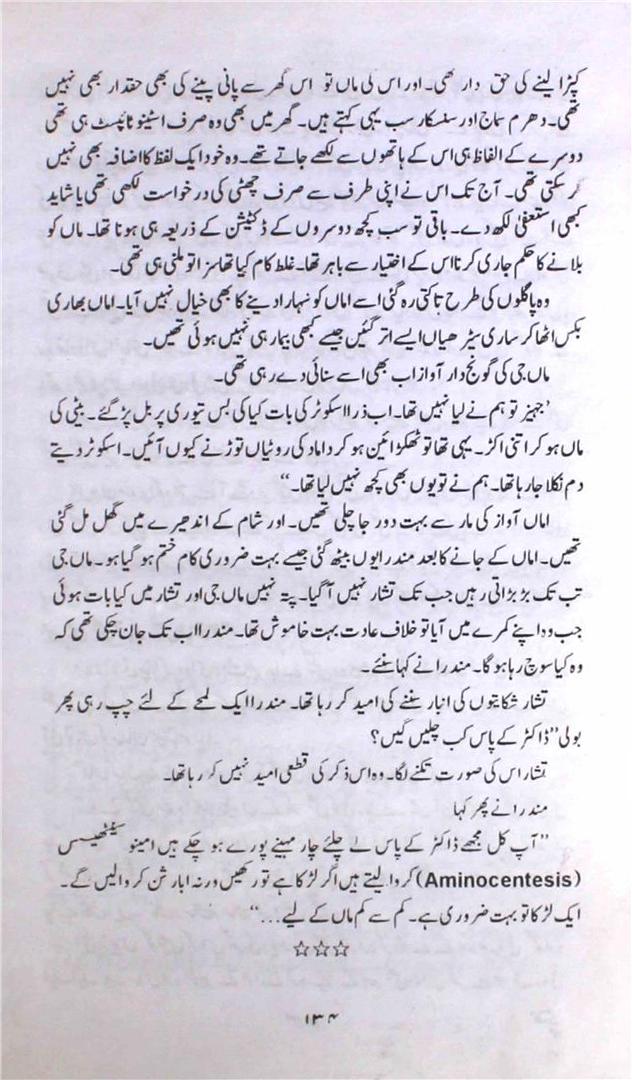 کپڑا لینے کی حق دار تھی۔ اور اس لی ماں تو اس گھر سے پانی پینے کی بھی حقدار بھی نہیں
تھی۔ دھرم سماج اور سنسکار سب یہی کہتے ہیں۔ گھر میں بھی وہ صرف اسٹینو ٹائپسٹ ہی تھی
دوسرے کے الفاظ ہی اس کے ہاتھوں سے لکھے جاتے تھے۔ وہ خود ایک لفظ کا اضافہ بھی نہیں
کر سکتی تھی۔ آج تک اس نے اپنی طرف سے صرف چھٹی کی درخواست لکھی تھی یا شاید
کبھی استعفیٰ لکھ دے۔ باقی تو سب کچھ دوسروں کے ڈکٹیشن کے ذریعہ ہی ہونا تھا۔ ماں کو
بلانے کا حکم جاری کرنا اس کے اختیار سے باہر تھا۔ غلط کام کیا تھا سزا تو ملنی ہی تھی۔
وہ پاگلوں کی طرح تاکتی رہ گئی اسے اماں کو سہارا دینے کا بھی خیال نہیں آیا۔ اماں بھاری
بکس اٹھا کر ساری سیڑھیاں ایسے اتر گئیں جیسے کبھی بیمار ہی نہیں ہوئی تھیں۔
ماں جی کی گونج دار آواز اب بھی اسے سنائی دے رہی تھی۔
'جہیز تو ہم نے لیا نہیں تھا۔ اب ذرا اسکوٹر کی بات کیا کی بس تیوری پر بل پڑ گئے۔ بیٹی کی
ماں ہو کر اتنی اکڑ۔ یہی تھا تو ٹھکرائین ہو کر داماد کی روٹیاں توڑنے کیوں آئیں۔ اسکوٹر دیتے
دم نکلا جا رہا تھا۔ ہم نے تو یوں بھی کچھ نہیں لیا تھا۔"
اماں آواز کی مار سے بہت دور جا چلی تھیں۔ اور شام کے اندھیرے میں گھل مل گئی
تھیں۔ اماں کے جانے کا بعد مندرا یوں بیٹھ گئی جیسے بہت ضروری کام ختم ہو گیا ہو۔ ماں جی
تب تک بڑبڑاتی رہیں جب تک تشار نہیں آ گیا۔ پتہ نہیں ماں جی اور تشار میں کیا بات ہوئی
جب وہ اپنے کمرے میں آیا تو خلاف عادت بہت خاموش تھا۔ مندرا اب تک جان چکی تھی کہ
وہ کیا سوچ رہا ہو گا۔ مندرا نے کہا سنئے
تشار شکایتوں کی انبار سننے کی امید کر رہا تھا۔ مندرا ایک لمحے کے لئے چپ رہی پھر
بولی "ڈاکٹر کے پاس کب چلیں گیں؟
تشار اس کی صورت تکنے لگا۔ وہ اس ذکر کی قطعی امید نہیں کر رہا تھا۔
مندرا نے پھر کہا
"آپ کل مجھے ڈاکٹر کے پاس لے چلئے چار مہینے پورے ہو چکے ہیں امینو سینٹھیسس
(Aminocentesis) کروا لیتے ہیں اگر لڑکا ہے تو رکھیں ورنہ ابارشن کروا لیں گے۔
ایک لڑکا تو بہت ضروری ہے۔ کم سے کم ماں کے لیے..."
☆☆☆
۱۳۴